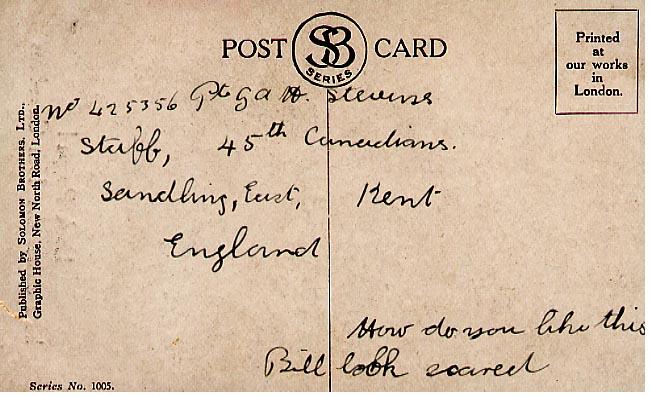 POST SB SERIES CARD
Printed
at
our works
in
London.
No 425356 Pte G A H. Stevens
Staff, 45th Canadians.
Sandling, East, Kent
England
How do you like this
Bill look scared
Published by SOLOMON BROTHERS, LTD.,
Graphic House, New North Road, London.
Series No. 1005.